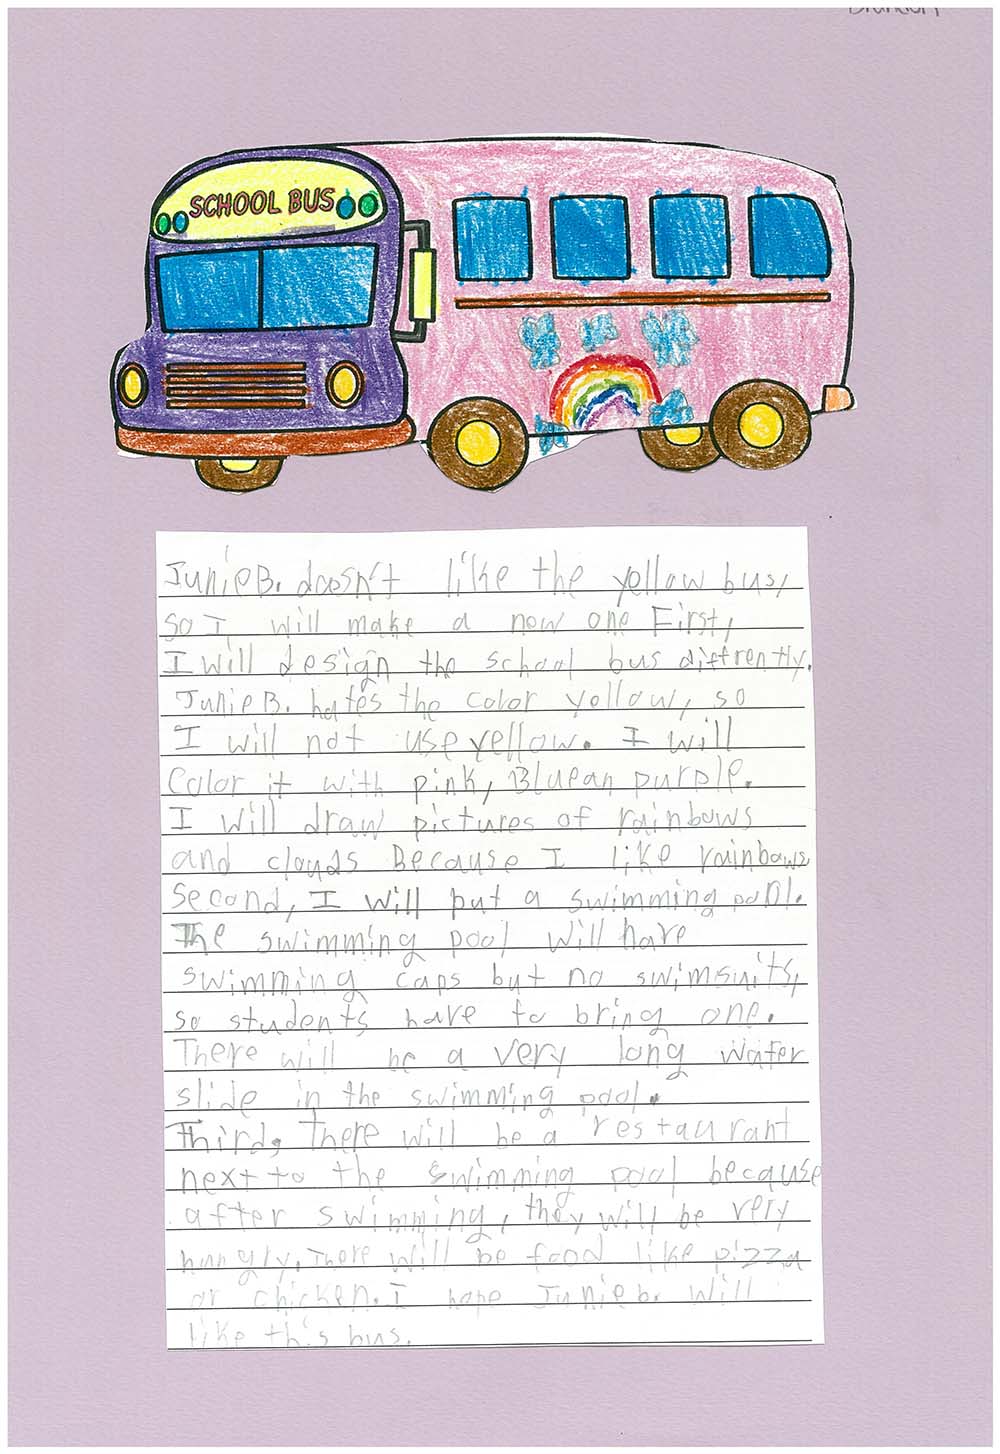 SCHOOL BUS
Junie B. doesn't like the yellow bus,
so I will make a new one First,
I will design the school bus diffrently.
Junie B. hates the color yellow, so
I will not use yellow. I will
color it with pink, Bluean purple.
I will draw pictures of rainbows
and clouds Because I like rainbows
Second, I will put a swimming pool.
The swimming pool will have
swimming caps but no swimsuits,
so students have to bring one.
There will be a very long water
slide in the swimming pool.
Third, There will be a restaurant
next to the swimming pool because
after swimming, they will be very
hungly. There will be food like pizza
or chicken. I hope Junie b. will
like this bus.